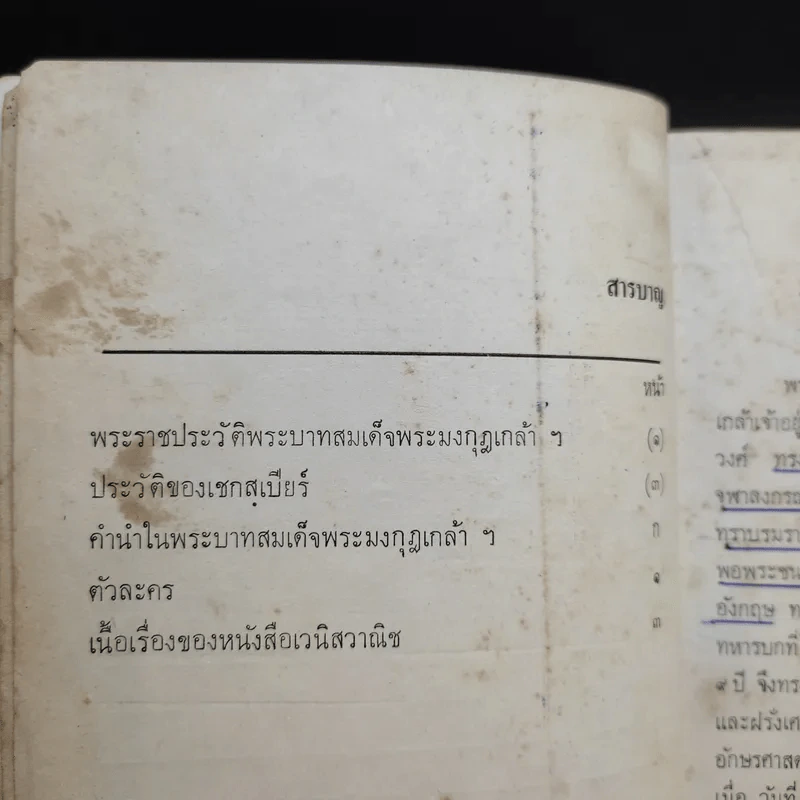 สารบาญ
หน้า
พระราชประวัติพระบาทสมเด็จพระมงกุฎเกล้า ฯ (๑)
ประวัติของเชกสฺเปียร์ (๓)
คำนำในพระบาทสมเด็จพระมงกุฎเกล้า ฯ ก
ตัวละคร ๑
เนื้อเรื่องของหนังสือเวนิสวาณิช ๓
เกล้าเจ้าอยู่
วงศ์ ทรง
จุฬาลงกรณ
ทราบรมรา
พอพระชน
อังกฤษ ท
ทหารบกที่
๙ ปี จึงทร
และฝรั่งเศ
อักษรศาสต
เมื่อ วันที่